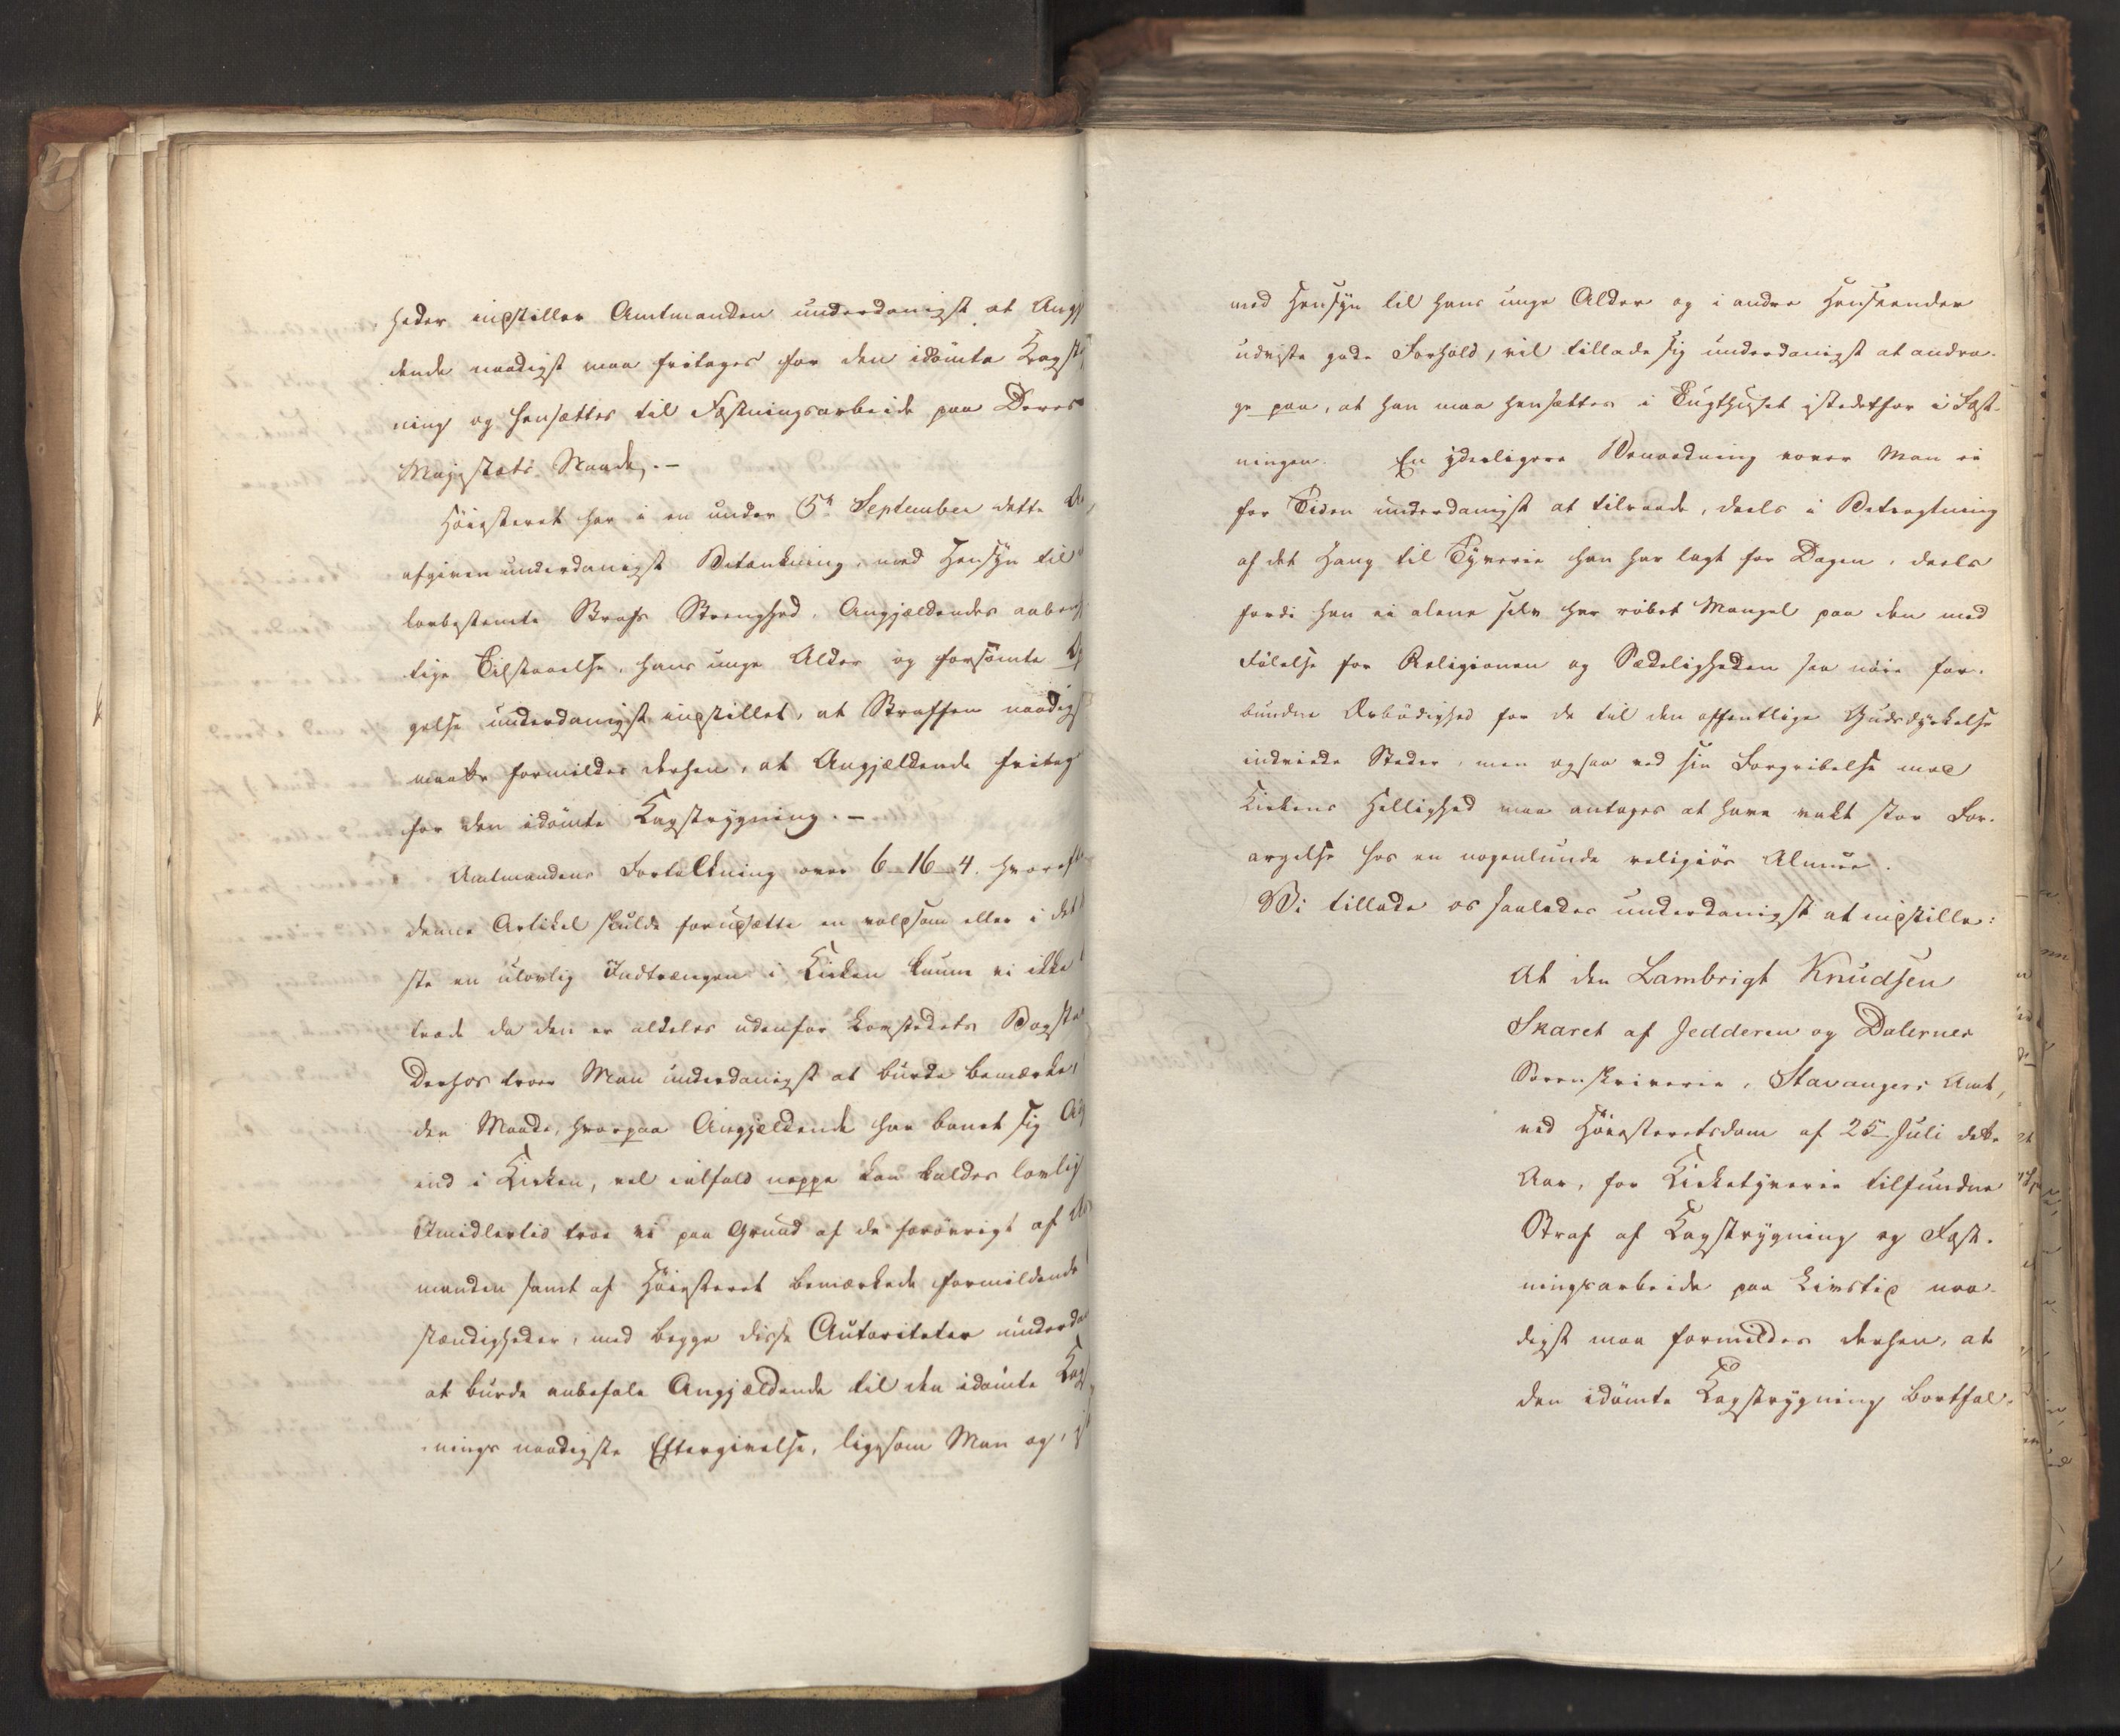 heder instiller Amtmanden underdanigst at Angj
dende naadigst maa fritages for den idömte Kagst
ning og hensættes til Fæstningsarbeide paa Deres
Majestæts Naade. -
Höiesteret har i en under 5te September dette
afgiven underdanigst Betænkning, med Hensyn til
lovbestemte Strafs Strenghed, Angjældendes aaben
tige Tilstaaelse, hans unge Alder og forsömte
gelse underdanigst instillet, at Straffen naadigst
maatte formildes derhen, at Angjældende fritag
for den idömte Kagstrygning. -
Amtmandens Fortolkning over 6-16-4. hvoreft
denne Artikel skulde forudsætte en voldsom eller i det
ste en ulovlig Indtrængen i Kirken kunne vi ikke
træde da den er aldeles udenfor Lovstedets Bogsta
Derhos troer Man underdanigst at burde bemærke,
den Maade, hvorpaa Angjældende har banet sig
ind i Kirken, vel ialfald neppe kan kaldes lovlig
Imidlertid troe vi paa Grund af de forövrigt af
manden samt af Höiesteret bemærkede formildende
stændigheder, med begge disse Autoriteter underda
at burde anbefale Angjældende til den idömte Kag
nings naadigste Eftergivelse, ligesom Man og,
med Hensyn til hans unge Alder og i andre Henseender
udviste gode Forhold, vil tillade sig underdanigst at andra-
ge paa, at han maa hensættes i Tugthuset istedetfor i Fæst-
ningen. En yderligere Benaadning vover Man ei
for Tiden underdanigst at tilraade, deels i Betragtning
af det Hang til Tyverie han har lagt for Dagen, deels
fordi han ei alene selv har röbet Mangel paa den med
Fölelse for Religionen og Sædeligheden saa nöie for-
bundne Ærbödighed for de til den offentlige Gudsdyrkelse
indviede Steder, men ogsaa ved sin Forgribelse mod
Kirkens Hellighed maa antages at have vakt stor For-
argelse hos en nogenlunde religiös Almue.
Vi tillade os saaledes underdanigst at instille:
At den Lambrigt Knudsen
Skaret af Jedderen og Dalernes
Sorenskriverie, Stavangers Amt,
ved Höiesteretsdom af 25 Juli dette
Aar, for Kirketyverie tilfundne
Straf af Kagstrygning og Fæst-
ningsarbeide paa Livstid naa-
digst maa formildes derhen, at
den idömte Kagstrygning bortfal-